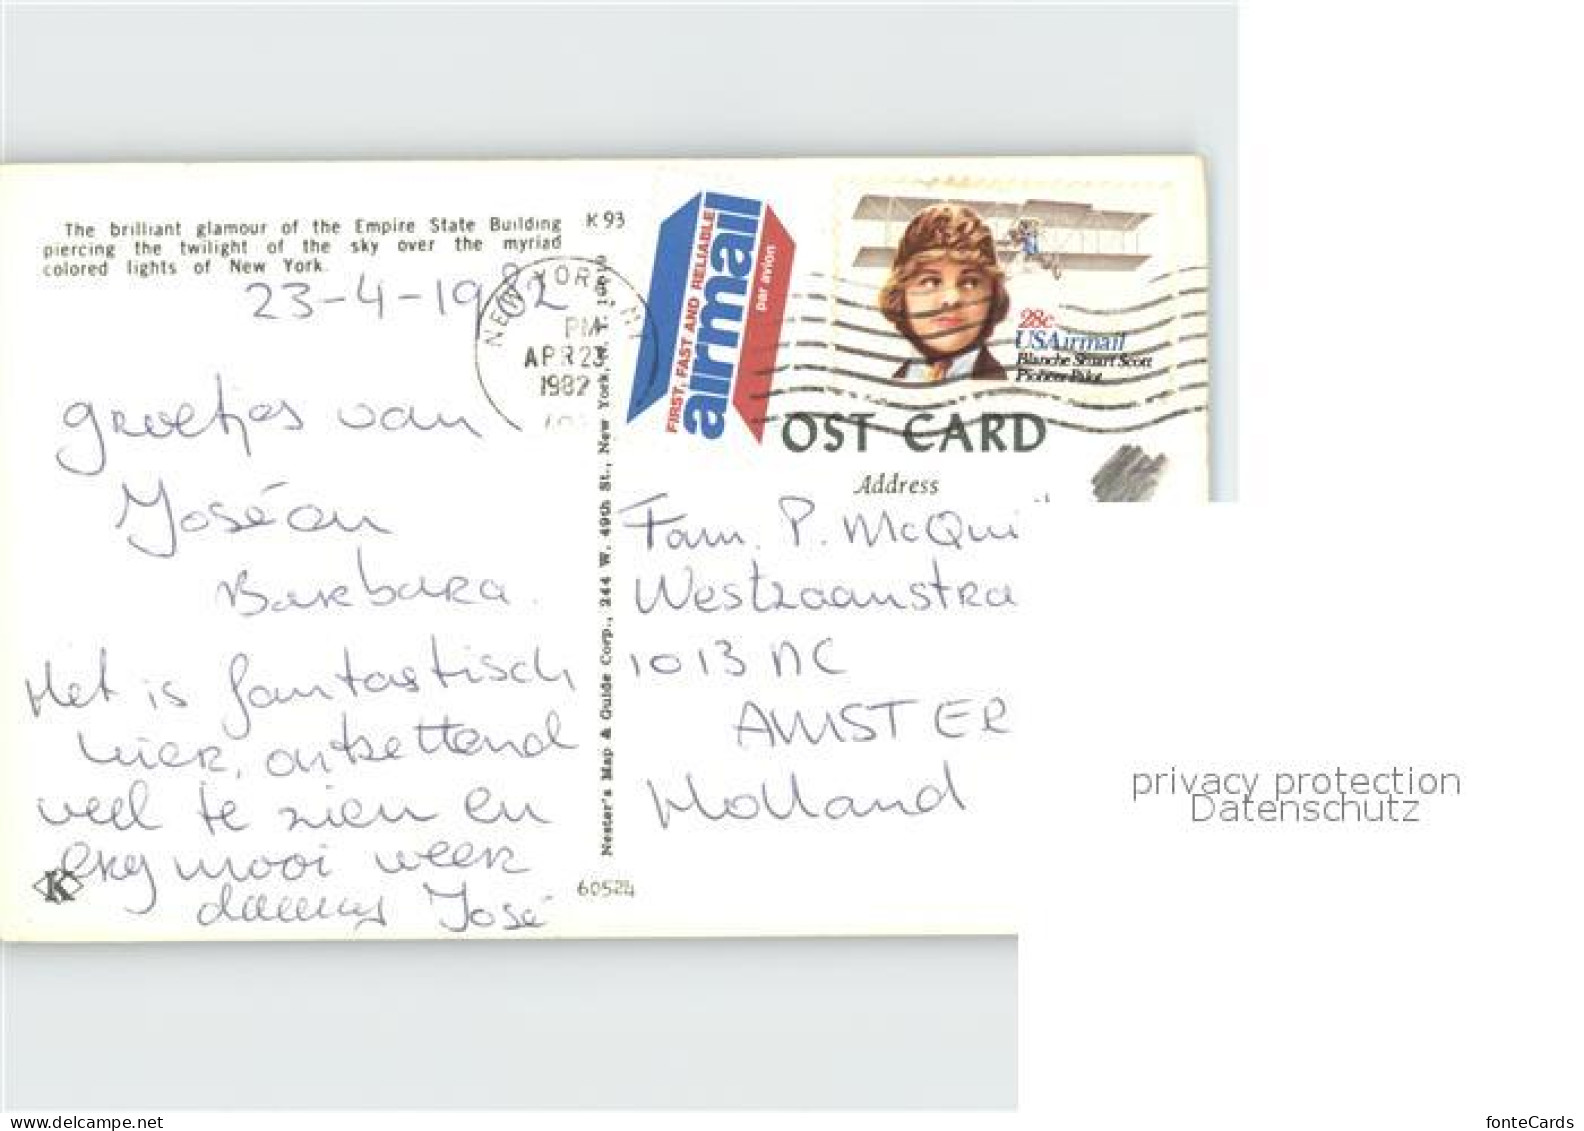 The brilliant glamour of the Empire State Building
piercing the twilight of the sky over the myriad
colored lights of New York.
K 93
23-4-1982
groetjes van
José en
Barbara.
Het is fantastisch
hier, ontzettend
veel te zien en
erg mooi weer
José
K
NEW YORK, NY
PM
APR 23
1982
Nester's Map & Guide Corp., 244 W. 49th St., New York, N. Y. 10019
60524
FIRST, FAST AND RELIABLE
airmail
par avion
28c
USAirmail
Blanche Stuart Scott
Pioneer Pilot
OST CARD
Address
Fam. P. McQui
Westzaanstra
1013 NC
AMSTER
Holland
privacy protection
Datenschutz
www.delcampe.net
fonteCards